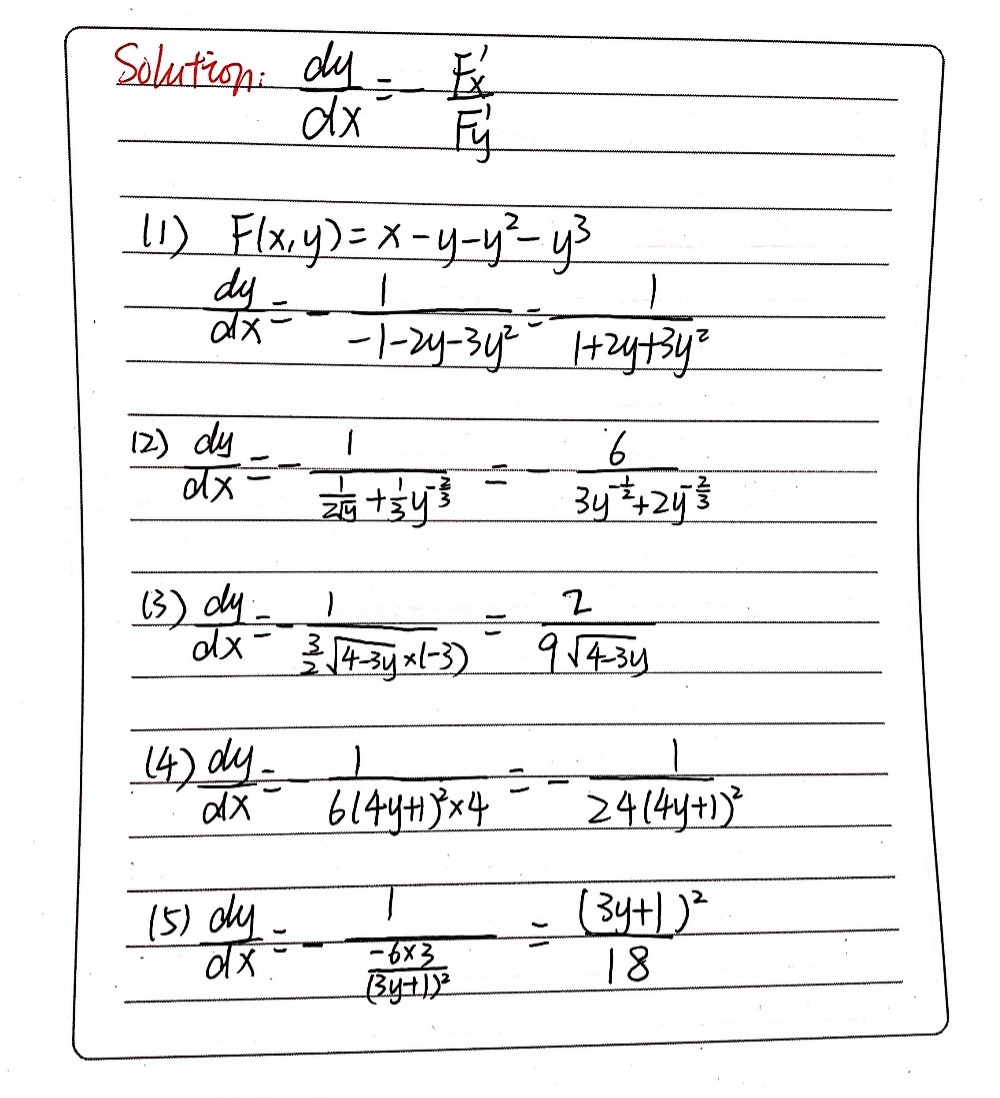 Solution: dy/dx = - F'x/F'y
(1) F(x,y) = x - y - y² - y³
dy/dx = - 1/(-1-2y-3y²) = 1/(1+2y+3y²)
(2) dy/dx = - 1/(1/(2√y) + 1/3 y^(-2/3)) = - 6/(3y^(-1/2) + 2y^(-2/3))
(3) dy/dx = - 1/(3/2 √(4-3y) × (-3)) = 2/(9√(4-3y))
(4) dy/dx = - 1/(6(4y+1)² × 4) = - 1/(24(4y+1)²)
(5) dy/dx = - 1/((-6×3)/(3y+1)²) = (3y+1)²/18